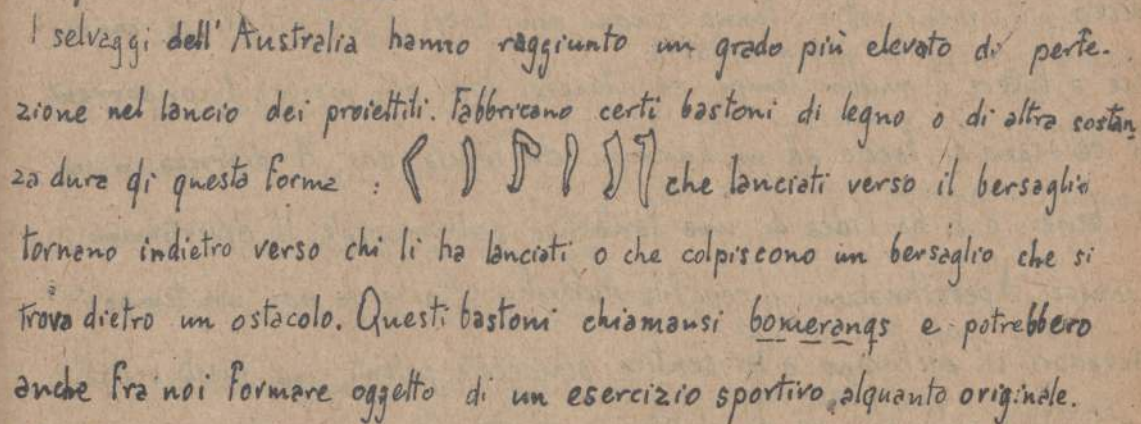 I selvaggi dell'Australia hanno raggiunto un grado più elevato di perfe-
zione nel lancio dei proiettili. Fabbricano certi bastoni di legno o di altra sostan
za dura di questa forma : che lanciati verso il bersaglio
tornano indietro verso chi li ha lanciati o che colpiscono un bersaglio che si
trova dietro un ostacolo. Questi bastoni chiamansi bomerangs e potrebbero
anche fra noi formare oggetto di un esercizio sportivo alquanto originale.